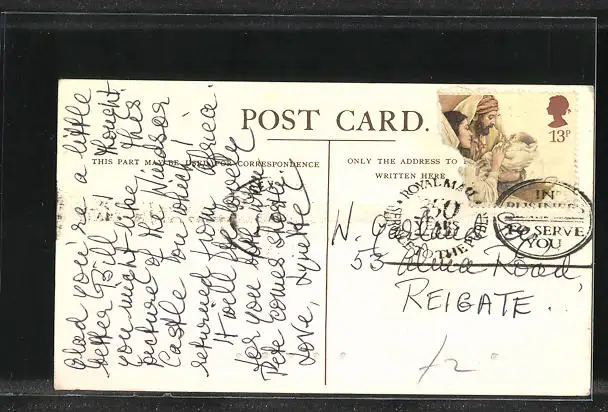 POST CARD.
THIS PART MAY BE USED FOR CORRESPONDENCE
ONLY THE ADDRESS TO
WRITTEN HERE
13P
ROYAL MAIL
350
YEARS
SERVICE TO THE PUBLIC
IN
BUSINESS
TO SERVE
YOU
Glad you're a little
better Bill. thought
you might like this
picture of the Windsor
Castle you
returned from Africa.
It will be lovely
for you when
Pete comes
Love, Lynette
N.
53 Alma Road,
REIGATE.
£2